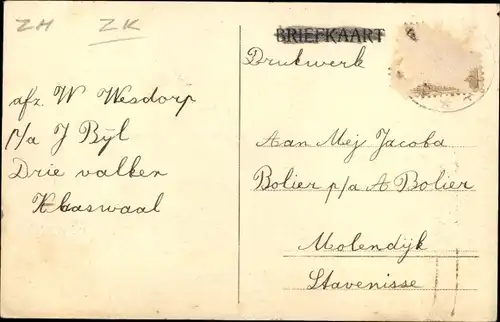 ZH ZK
BRIEFKAART
Drukwerk
afz. W Wesdorp
p/a J Bijl
Drie valken
Klaaswaal
Aan Mej Jacoba
Bolier p/a A Bolier
Molendijk
Stavenisse